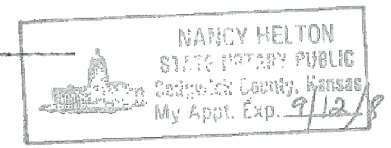 NANCY HELTON
STATE NOTARY PUBLIC
Sedgwick County, Kansas
My Appt. Exp. 9/12/18